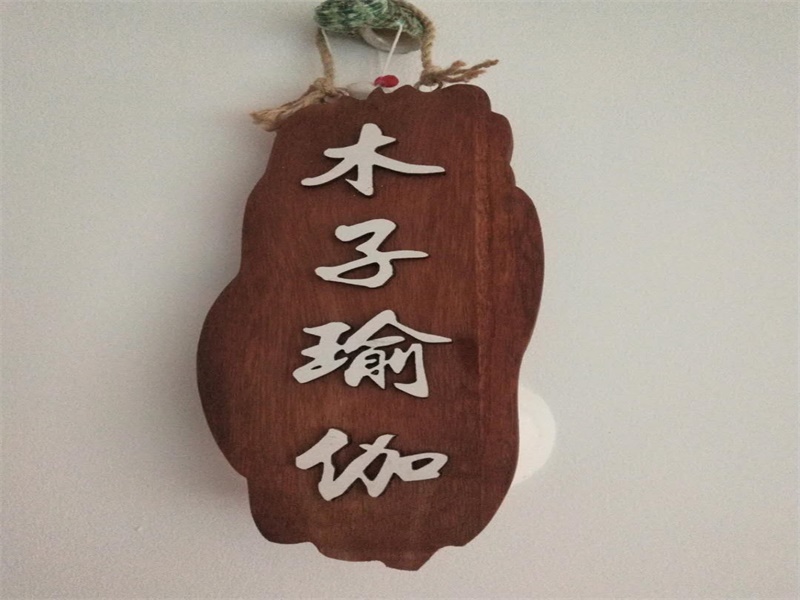 木子瑜伽